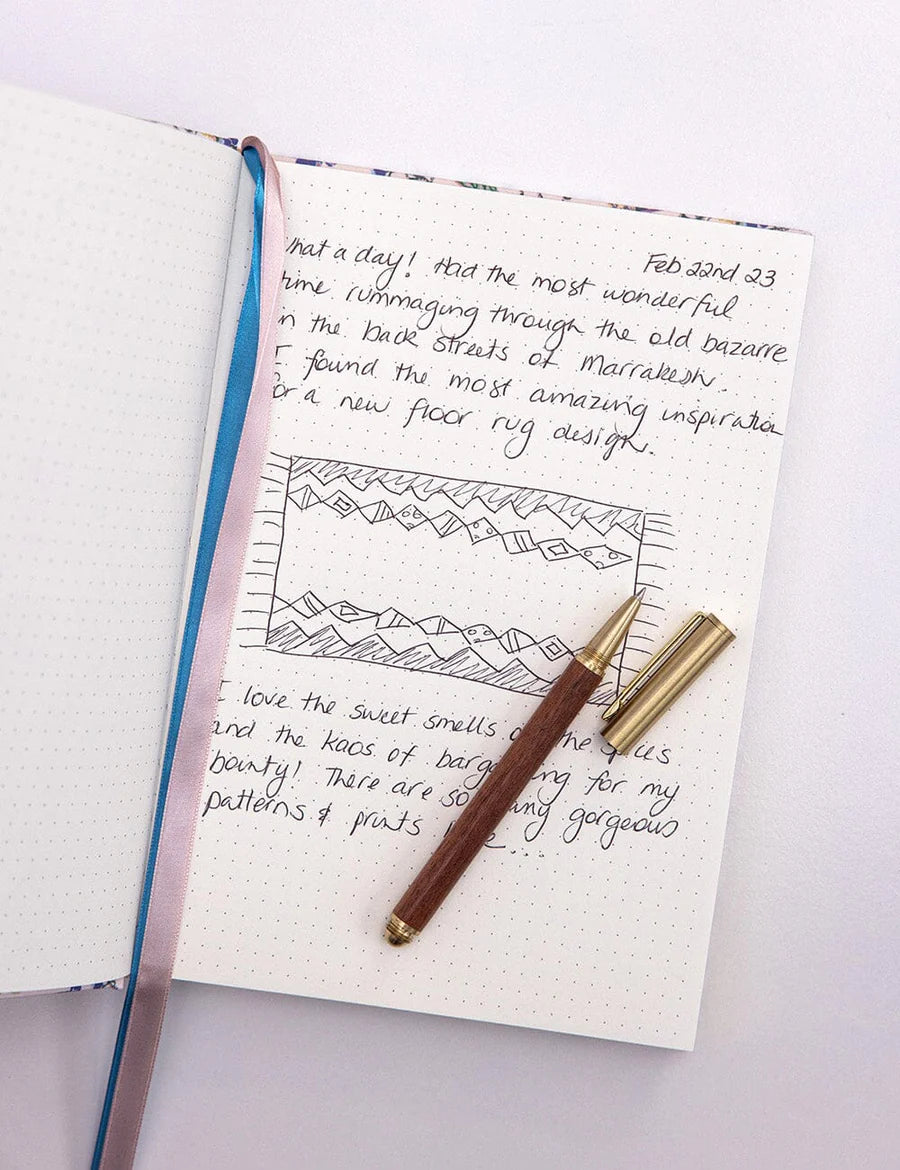 Feb 22nd 23
hat a day! Had the most wonderful
time rummaging through the old bazarre
in the back streets of Marrakesh.
I found the most amazing inspiration
for a new floor rug design.
I love the sweet smells the spices
and the kaos of barga ing for my
bounty! There are so any gorgeous
patterns & prints e...